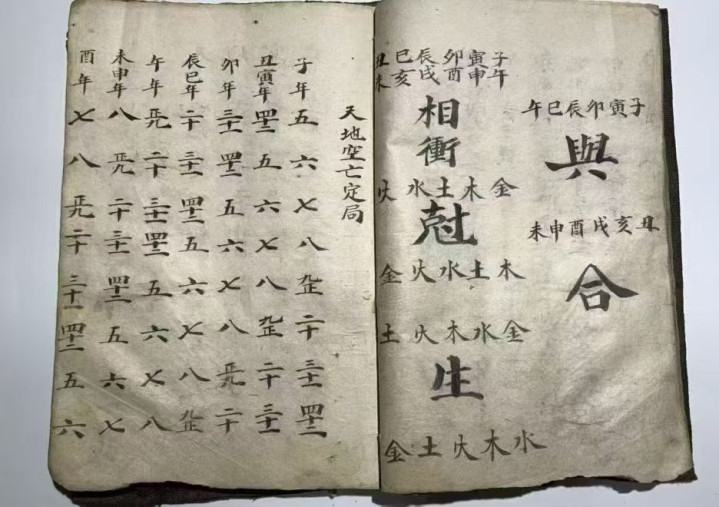 子寅卯辰巳午
與
丑亥戌酉申未
合
子午 寅申 卯酉 辰戌 巳亥 丑未
相衝
金木土水火
尅
木土水火金
金水木火土
生
水木火土金
天地空亡定局
子年 五 六 七 八 九正 二十 三十一 四十二
丑寅年 四十二 五 六 七 八 九正 二十 三十一
卯年 三十一 四十二 五 六 七 八 正九 二十
辰巳年 二十 三十一 四十二 五 六 七 八 九正
午年 正九 二十 三十一 四十二 五 六 七 八
未申年 八 正九 二十 三十一 四十二 五 六 七
酉年 七 八 正九 二十 三十一 四十二 五 六